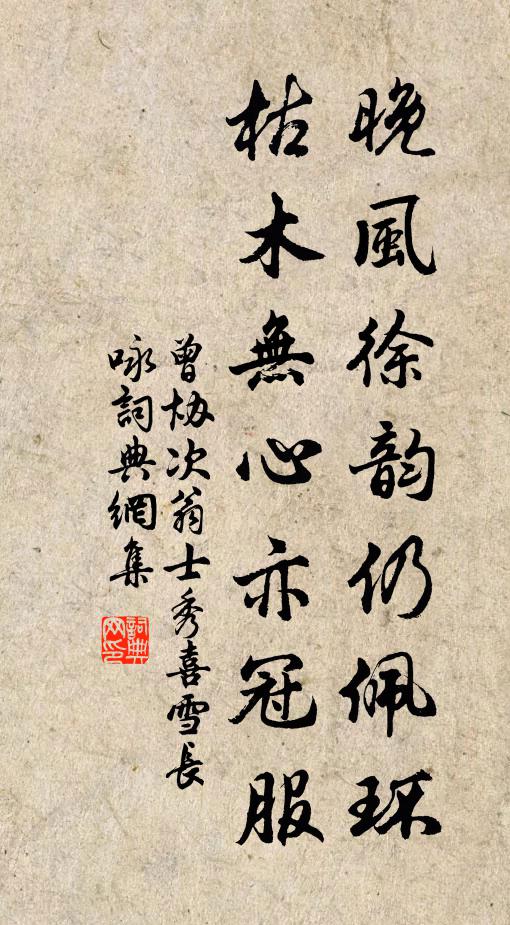 晚風徐韵仍佩环
枯木無心亦冠服
曾協次翁士秀喜雪長
咏詞典網集
詞典
网印